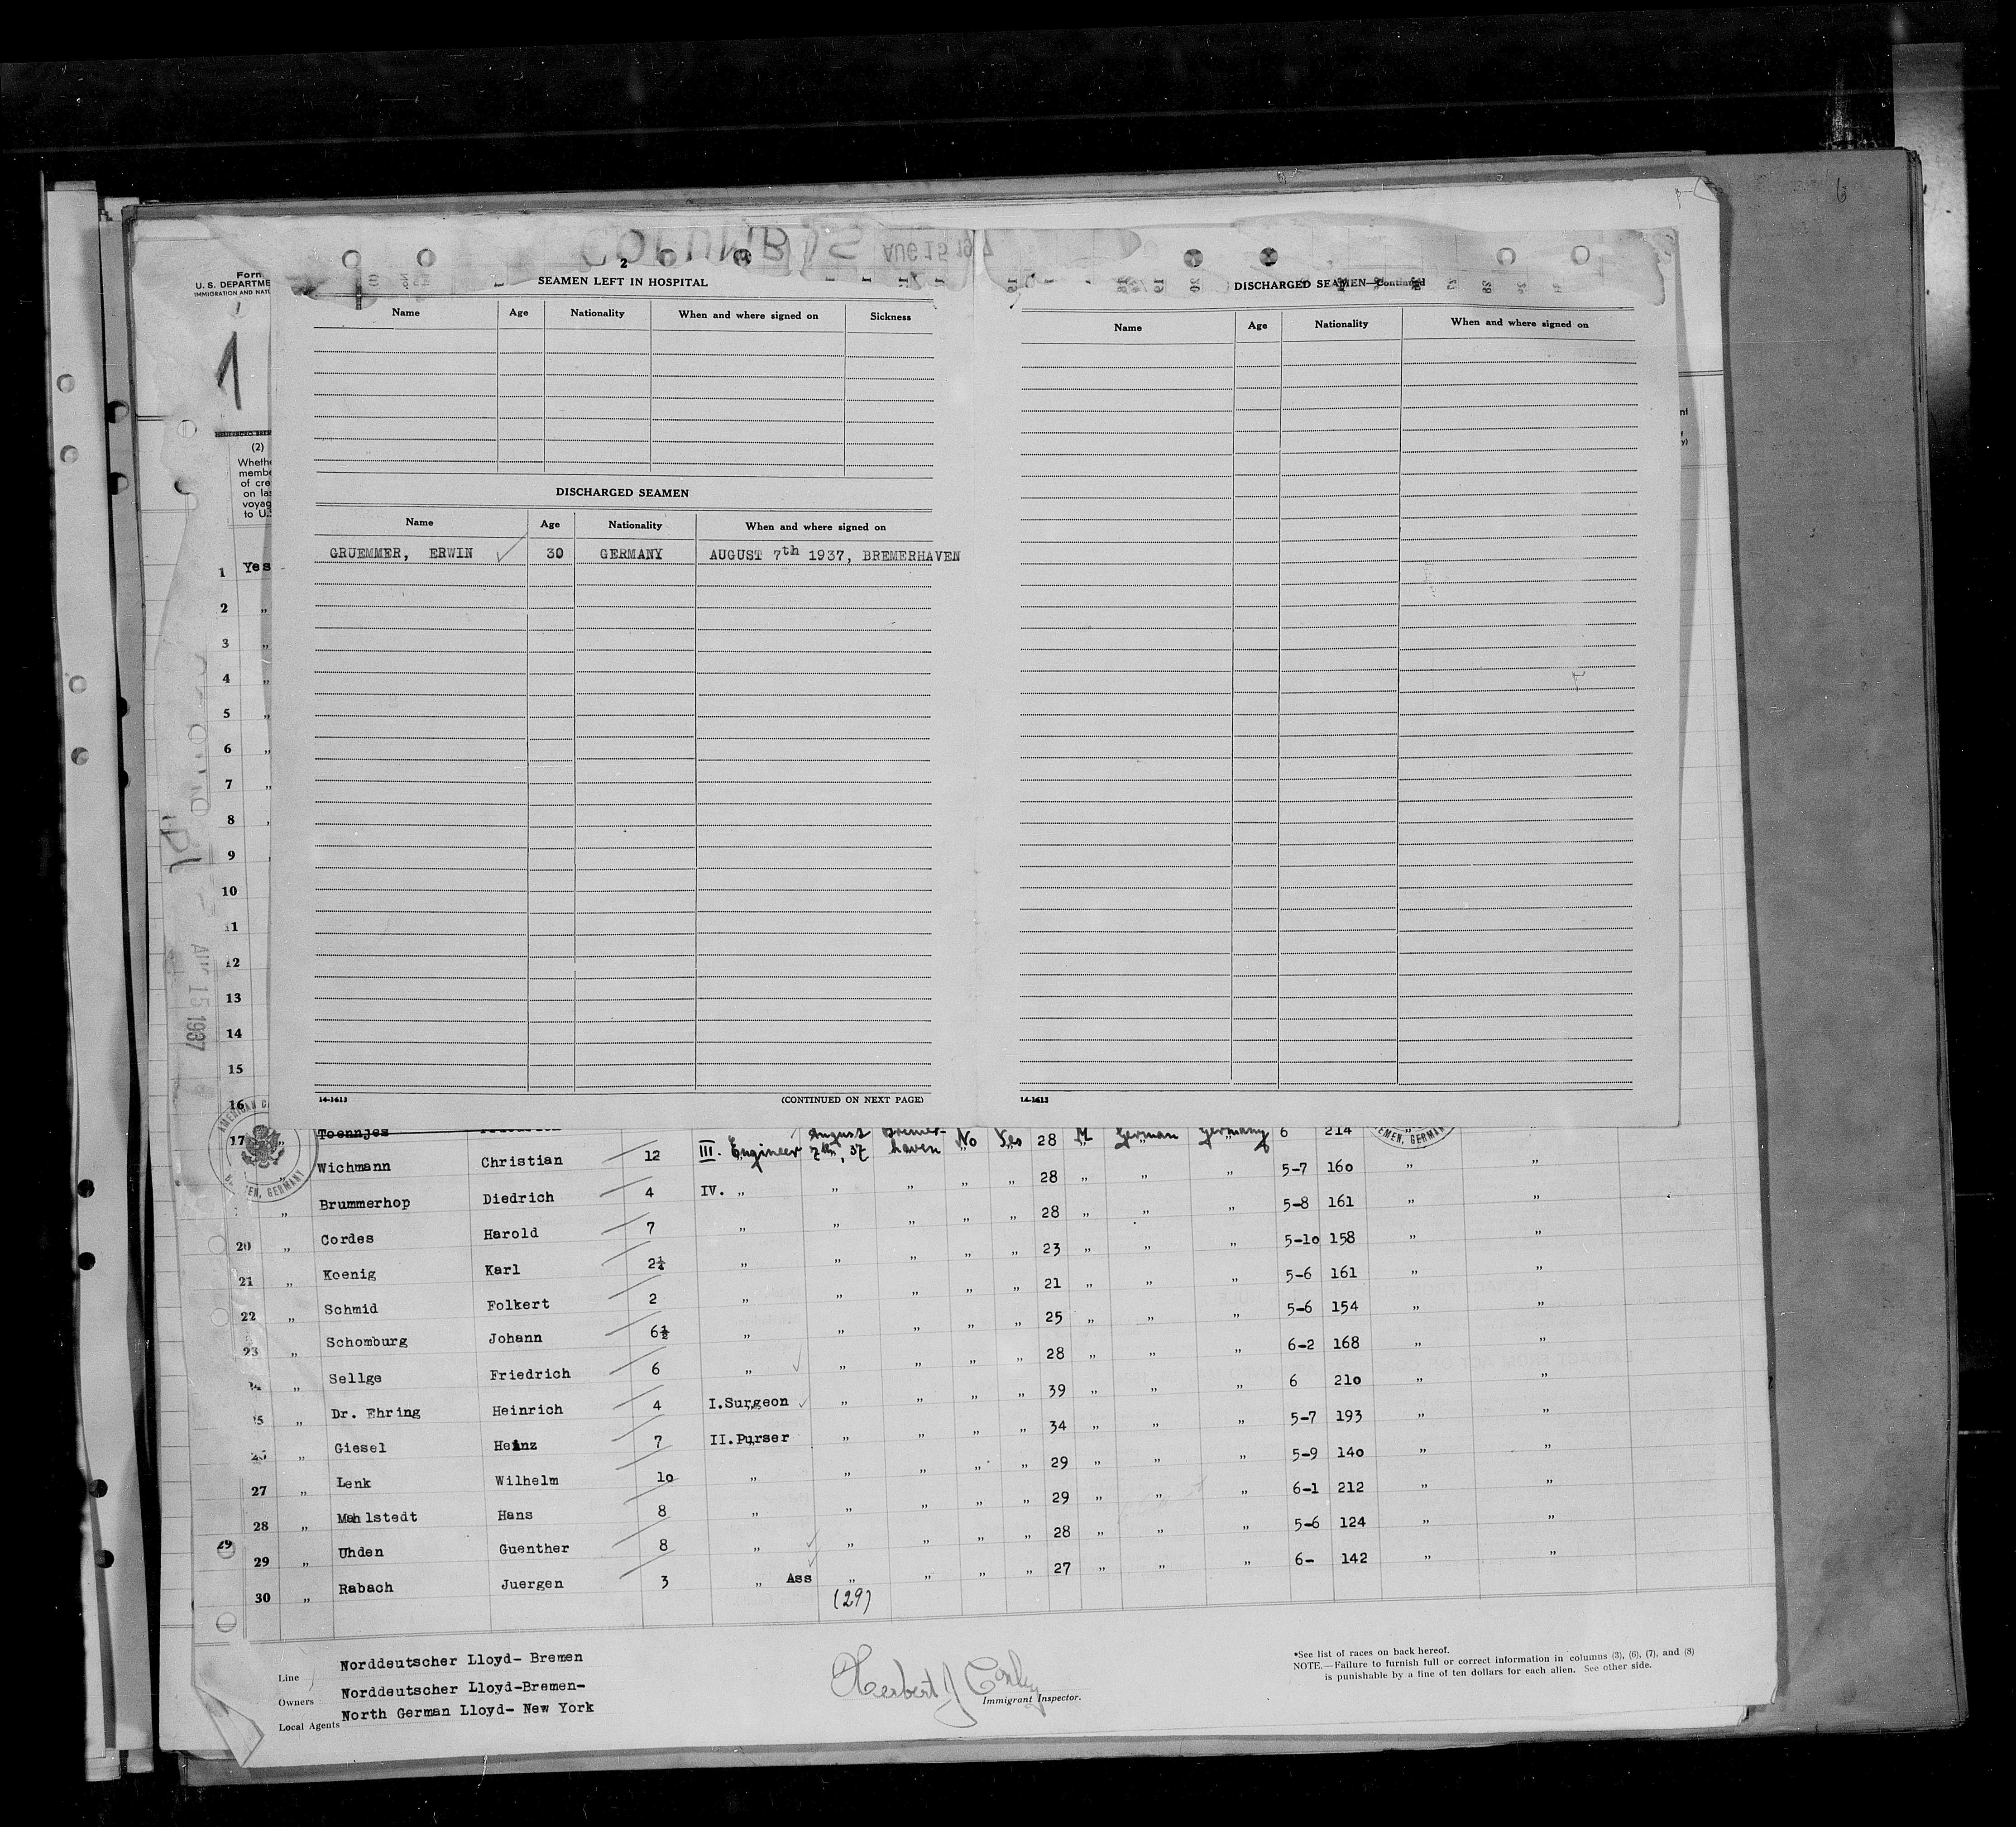 COLUMBUS AUG 15 1937
6
Form
U. S. DEPARTME
IMMIGRATION AND NATU
1
2
SEAMEN LEFT IN HOSPITAL
Name Age Nationality When and where signed on Sickness
DISCHARGED SEAMEN
Name Age Nationality When and where signed on
GRUEMMER, ERWIN 30 GERMANY AUGUST 7th 1937, BREMERHAVEN
14-1613 (CONTINUED ON NEXT PAGE)
DISCHARGED SEAMEN—Continued
Name Age Nationality When and where signed on
14-1613
(2)
Wheth
membe
of cre
on las
voyag
to U.S
1 Yes
2 „
3 „
4 „
5 „
6 „
7 „
8
9
10
11
12
13
14
15
16
AUG 15 1937
AMERICAN C
EN, GERMANY
EMEN, GERMAN
17 „ Toennjes August Bremer- No Yes 28 M German Germany 6 214 „
Wichmann Christian 12 III. Engineer 7th, 37 haven „ „ 28 „ „ „ 5-7 160 „ „
„ Brummerhop Diedrich 4 IV. „ „ „ „ „ 28 „ „ „ 5-8 161 „ „
20 „ Cordes Harold 7 „ „ „ „ „ 23 „ „ „ 5-10 158 „ „
21 „ Koenig Karl 2¼ „ „ „ „ „ 21 „ „ „ 5-6 161 „ „
22 „ Schmid Folkert 2 „ „ „ „ „ 25 „ „ „ 5-6 154 „ „
23 „ Schomburg Johann 6½ „ „ „ „ „ 28 „ „ „ 6-2 168 „ „
24 „ Sellge Friedrich 6 „ „ „ „ „ 39 „ „ „ 6 210 „ „
25 „ Dr. Ehring Heinrich 4 I.Surgeon „ „ „ „ 34 „ „ „ 5-7 193 „ „
26 „ Giesel Heinz 7 II.Purser „ „ „ „ 29 „ „ „ 5-9 140 „ „
27 „ Lenk Wilhelm 10 „ „ „ „ „ 29 „ „ „ 6-1 212 „ „
28 „ Mahlstedt Hans 8 „ „ „ „ „ 28 „ „ „ 5-6 124 „ „
29 „ Uhden Guenther 8 „ „ „ „ „ 27 „ „ „ 6- 142 „ „
30 „ Rabach Juergen 3 „ Ass „
(29)
29
Line Norddeutscher Lloyd- Bremen
Owners Norddeutscher Lloyd-Bremen-
Local Agents North German Lloyd- New York
Herbert J Conley
Immigrant Inspector.
*See list of races on back hereof.
NOTE.—Failure to furnish full or correct information in columns (3), (6), (7), and (8)
is punishable by a fine of ten dollars for each alien. See other side.